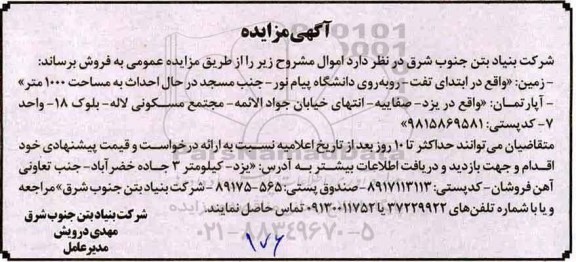 آگهی مزایده
شرکت بنیاد بتن جنوب شرق در نظر دارد اموال مشروح زیر را از طریق مزایده عمومی به فروش برساند:
- زمین: «واقع در ابتدای تفت - روبه‌روی دانشگاه پیام نور - جنب مسجد در حال احداث به مساحت ۱۰۰۰ متر»
- آپارتمان: «واقع در یزد- صفاییه- انتهای خیابان جواد الائمه- مجتمع مسکونی لاله- بلوک ۱۸- واحد
۷- کدپستی: ۹۸۱۵۸۶۹۵۸۱»
متقاضیان می‌توانند حداکثر تا ۱۰ روز بعد از تاریخ اعلامیه نسبت به ارائه درخواست و قیمت پیشنهادی خود
اقدام و جهت بازدید و دریافت اطلاعات بیشتر به آدرس: «یزد- کیلومتر ۳ جاده خضرآباد- جنب تعاونی
آهن فروشان- کدپستی: ۸۹۱۷۱۱۳۱۱۳- صندوق پستی: ۵۶۵-۸۹۱۷۵ -شرکت بنیاد بتن جنوب شرق» مراجعه
و یا با شماره تلفن‌های ۳۷۲۲۹۹۲۲ یا ۰۹۱۳۰۰۱۱۷۵۲ تماس حاصل نمایند.
شرکت بنیاد بتن جنوب شرق
مهدی درویش
مدیرعامل
۰۲۱-۸۸۳۴۹۶۷۰-۵
۱۷۶